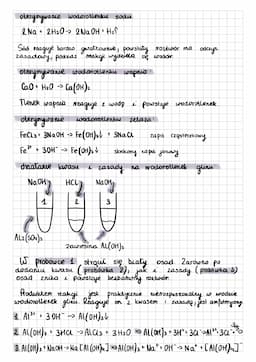 otrzymywanie wodorotlenku sodu
2Na + 2H₂O → 2NaOH + H₂↑
Sód reaguje bardzo gwałtownie, powstały roztwór ma odczyn
zasadowy, podczas reakcji wydziela się wodór.
otrzymywanie wodorotlenku wapnia
CaO + H₂O → Ca(OH)₂
Tlenek wapnia reaguje z wodą i powstaje wodorotlenek.
otrzymywanie wodorotlenku żelaza
FeCl₃ + 3NaOH → Fe(OH)₃↓ + 3NaCl zapis cząsteczkowy
Fe³⁺ + 3OH⁻ → Fe(OH)₃↓ skrócony zapis jonowy
działanie kwasu i zasady na wodorotlenek glinu
NaOH HCl NaOH
1 2 3
Al₂(SO₄)₃
zawiesina Al(OH)₃
W probówce 1 strąci się biały osad. Zarówno po
dodaniu kwasu (probówka 2), jak i zasady (probówka 3)
osad znika i powstaje bezbarwny roztwór.
Produktem reakcji jest praktycznie nierozpuszczalny w wodzie
wodorotlenek glinu. Reaguje on z kwasem i zasadą, jest amfoteryczny
1. Al³⁺ + 3OH⁻ → Al(OH)₃↓
2. Al(OH)₃ + 3HCl → AlCl₃ + 3H₂O
3. Al(OH)₃ + NaOH → Na[Al(OH)₄]